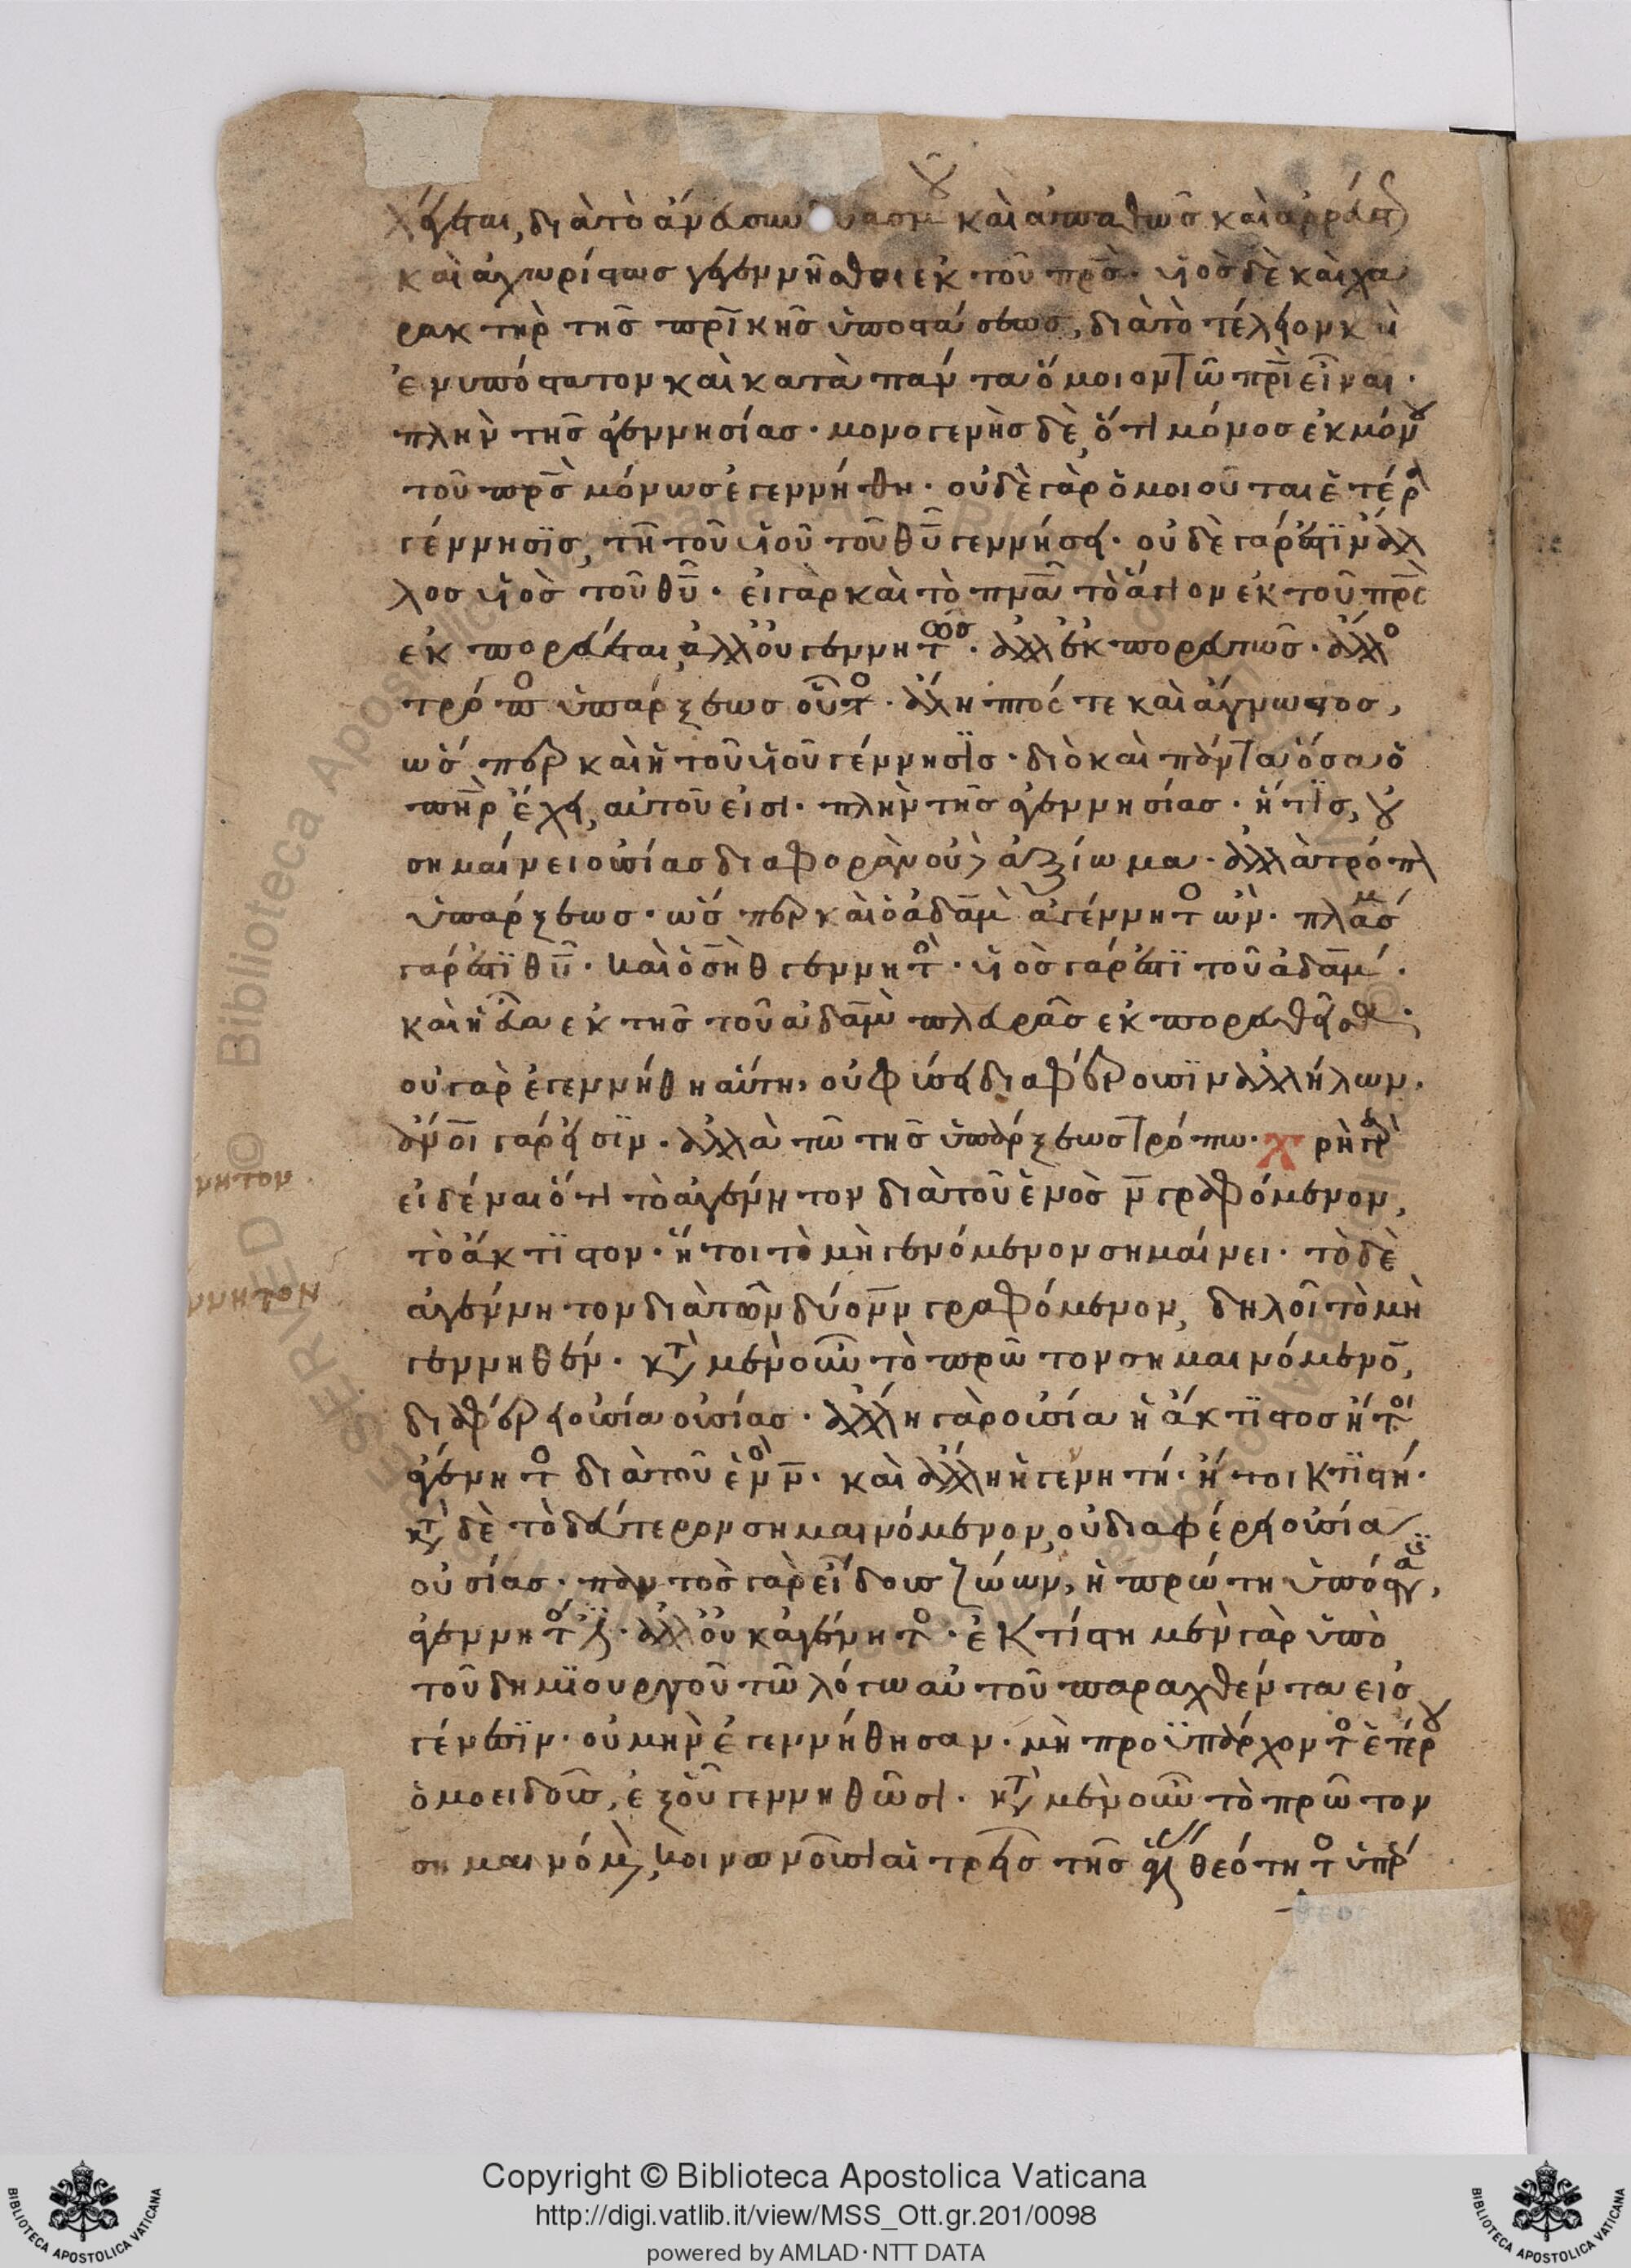 λέγεται, διὰ τὸ ἄνευ συνδυασμοῦ καὶ ἀπαθῶς καὶ ἀρρεύστως
καὶ ἀχωρίστως γεγεννῆσθαι ἐκ τοῦ πρς̅. υἱὸς δὲ καὶ χα
ρακτὴρ τῆς πρικῆς ὑποστάσεως, διὰ τὸ τέλειον καὶ
ἐνυπόστατον καὶ κατὰ πάντα ὅμοιον τῶ πρι̅ εἶναι.
πλὴν τῆς ἀγεννησίας. μονογενὴς δὲ, ὅτι μόνος ἐκ μόνου
τοῦ πρς̅ μόνως ἐγεννήθη. οὐδὲ γὰρ ὁμοιοῦται ἑτέρα
γέννησις, τῆ τοῦ υἱοῦ τοῦ θυ̅ γεννήσει. οὐδὲ γάρ ἐστιν ἄλ
λος υἱὸς τοῦ θυ̅. εἰ γὰρ καὶ τὸ πνα̅ τὸ ἅγιον ἐκ τοῦ πρς̅
ἐκπορεύεται, ἀλλ' οὐ γεννητῶς. ἀλλ' ἐκπορευτῶς. ἄλλος
τρόπος ὑπάρξεως οὗτος. ἄληπτός τε καὶ ἄγνωστος,
ὥσπερ καὶ ἡ τοῦ υἱοῦ γέννησις. διὸ καὶ πάντα ὅσα ὁ
πη̅ρ ἔχει, αὐτοῦ εἰσι. πλὴν τῆς ἀγεννησίας. ἥτις, οὐ
σημαίνει οὐσίας διαφορὰν οὐδὲ ἀξίωμα. ἀλλὰ τρόπον
ὑπάρξεως. ὥσπερ καὶ ὁ ἀδὰμ ἀγέννητος ὤν. πλάσμα
γάρ ἐστι θυ̅. καὶ ὁ σὴθ γεννητός. υἱὸς γάρ ἐστι τοῦ ἀδάμ.
καὶ ἡ εὔα ἐκ τῆς τοῦ ἀδὰμ πλευρᾶς ἐκπορευθεῖσα.
οὐ γὰρ ἐγεννήθη αὕτη, οὐ φύσει διαφέρουσιν ἀλλήλων.
ἄνοι̅ γάρ εἰσιν. ἀλλὰ τῶ τῆς ὑπάρξεως τρόπω. χρὴ γὰρ
εἰδέναι ὅτι τὸ ἀγένητον διὰ τοῦ ἑνὸς ν̅ γραφόμενον,
τὸ ἄκτιστον. ἤτοι τὸ μὴ γενόμενον σημαίνει. τὸ δὲ
ἀγέννητον διὰ τῶν δύο ν̅ν̅ γραφόμενον, δηλοῖ τὸ μὴ
γεννηθέν. κατὰ μὲν οὖν τὸ πρῶτον σημαινόμενον,
διαφέρει οὐσία οὐσίας. ἄλλη γὰρ οὐσία ἡ ἄκτιστος ἤτοι
ἀγένητος διὰ τοῦ ἑνὸς ν̅. καὶ ἄλλη ἡ γενητή. ἤτοι κτιστή.
κατὰ δὲ τὸ δεύτερον σημαινόμενον, οὐ διαφέρει οὐσία
οὐσίας. παντὸς γὰρ εἴδους ζώων, ἡ πρώτη ὑπόστασις,
ἀγέννητός ἐστιν. ἀλλ' οὐκ ἀγένητος. ἐκτίσθη μὲν γὰρ ὑπὸ
τοῦ δημιουργοῦ τῶ λόγω αὐτοῦ παραχθέντα εἰς
γένεσιν. οὐ μὴν ἐγεννήθησαν. μὴ προϋπάρχοντος ἑτέρου
ὁμοειδοῦς, ἐξ οὗ γεννηθῶσι. κατὰ μὲν οὖν τὸ πρῶτον
σημαινόμενον, κοινωνοῦσι αἱ τρεῖς τῆς ἁγίας θεότητος ὑπερ
νητον.
ννητον
Copyright © Biblioteca Apostolica Vaticana
http://digi.vatlib.it/view/MSS_Ott.gr.201/0098
powered by AMLAD·NTT DATA